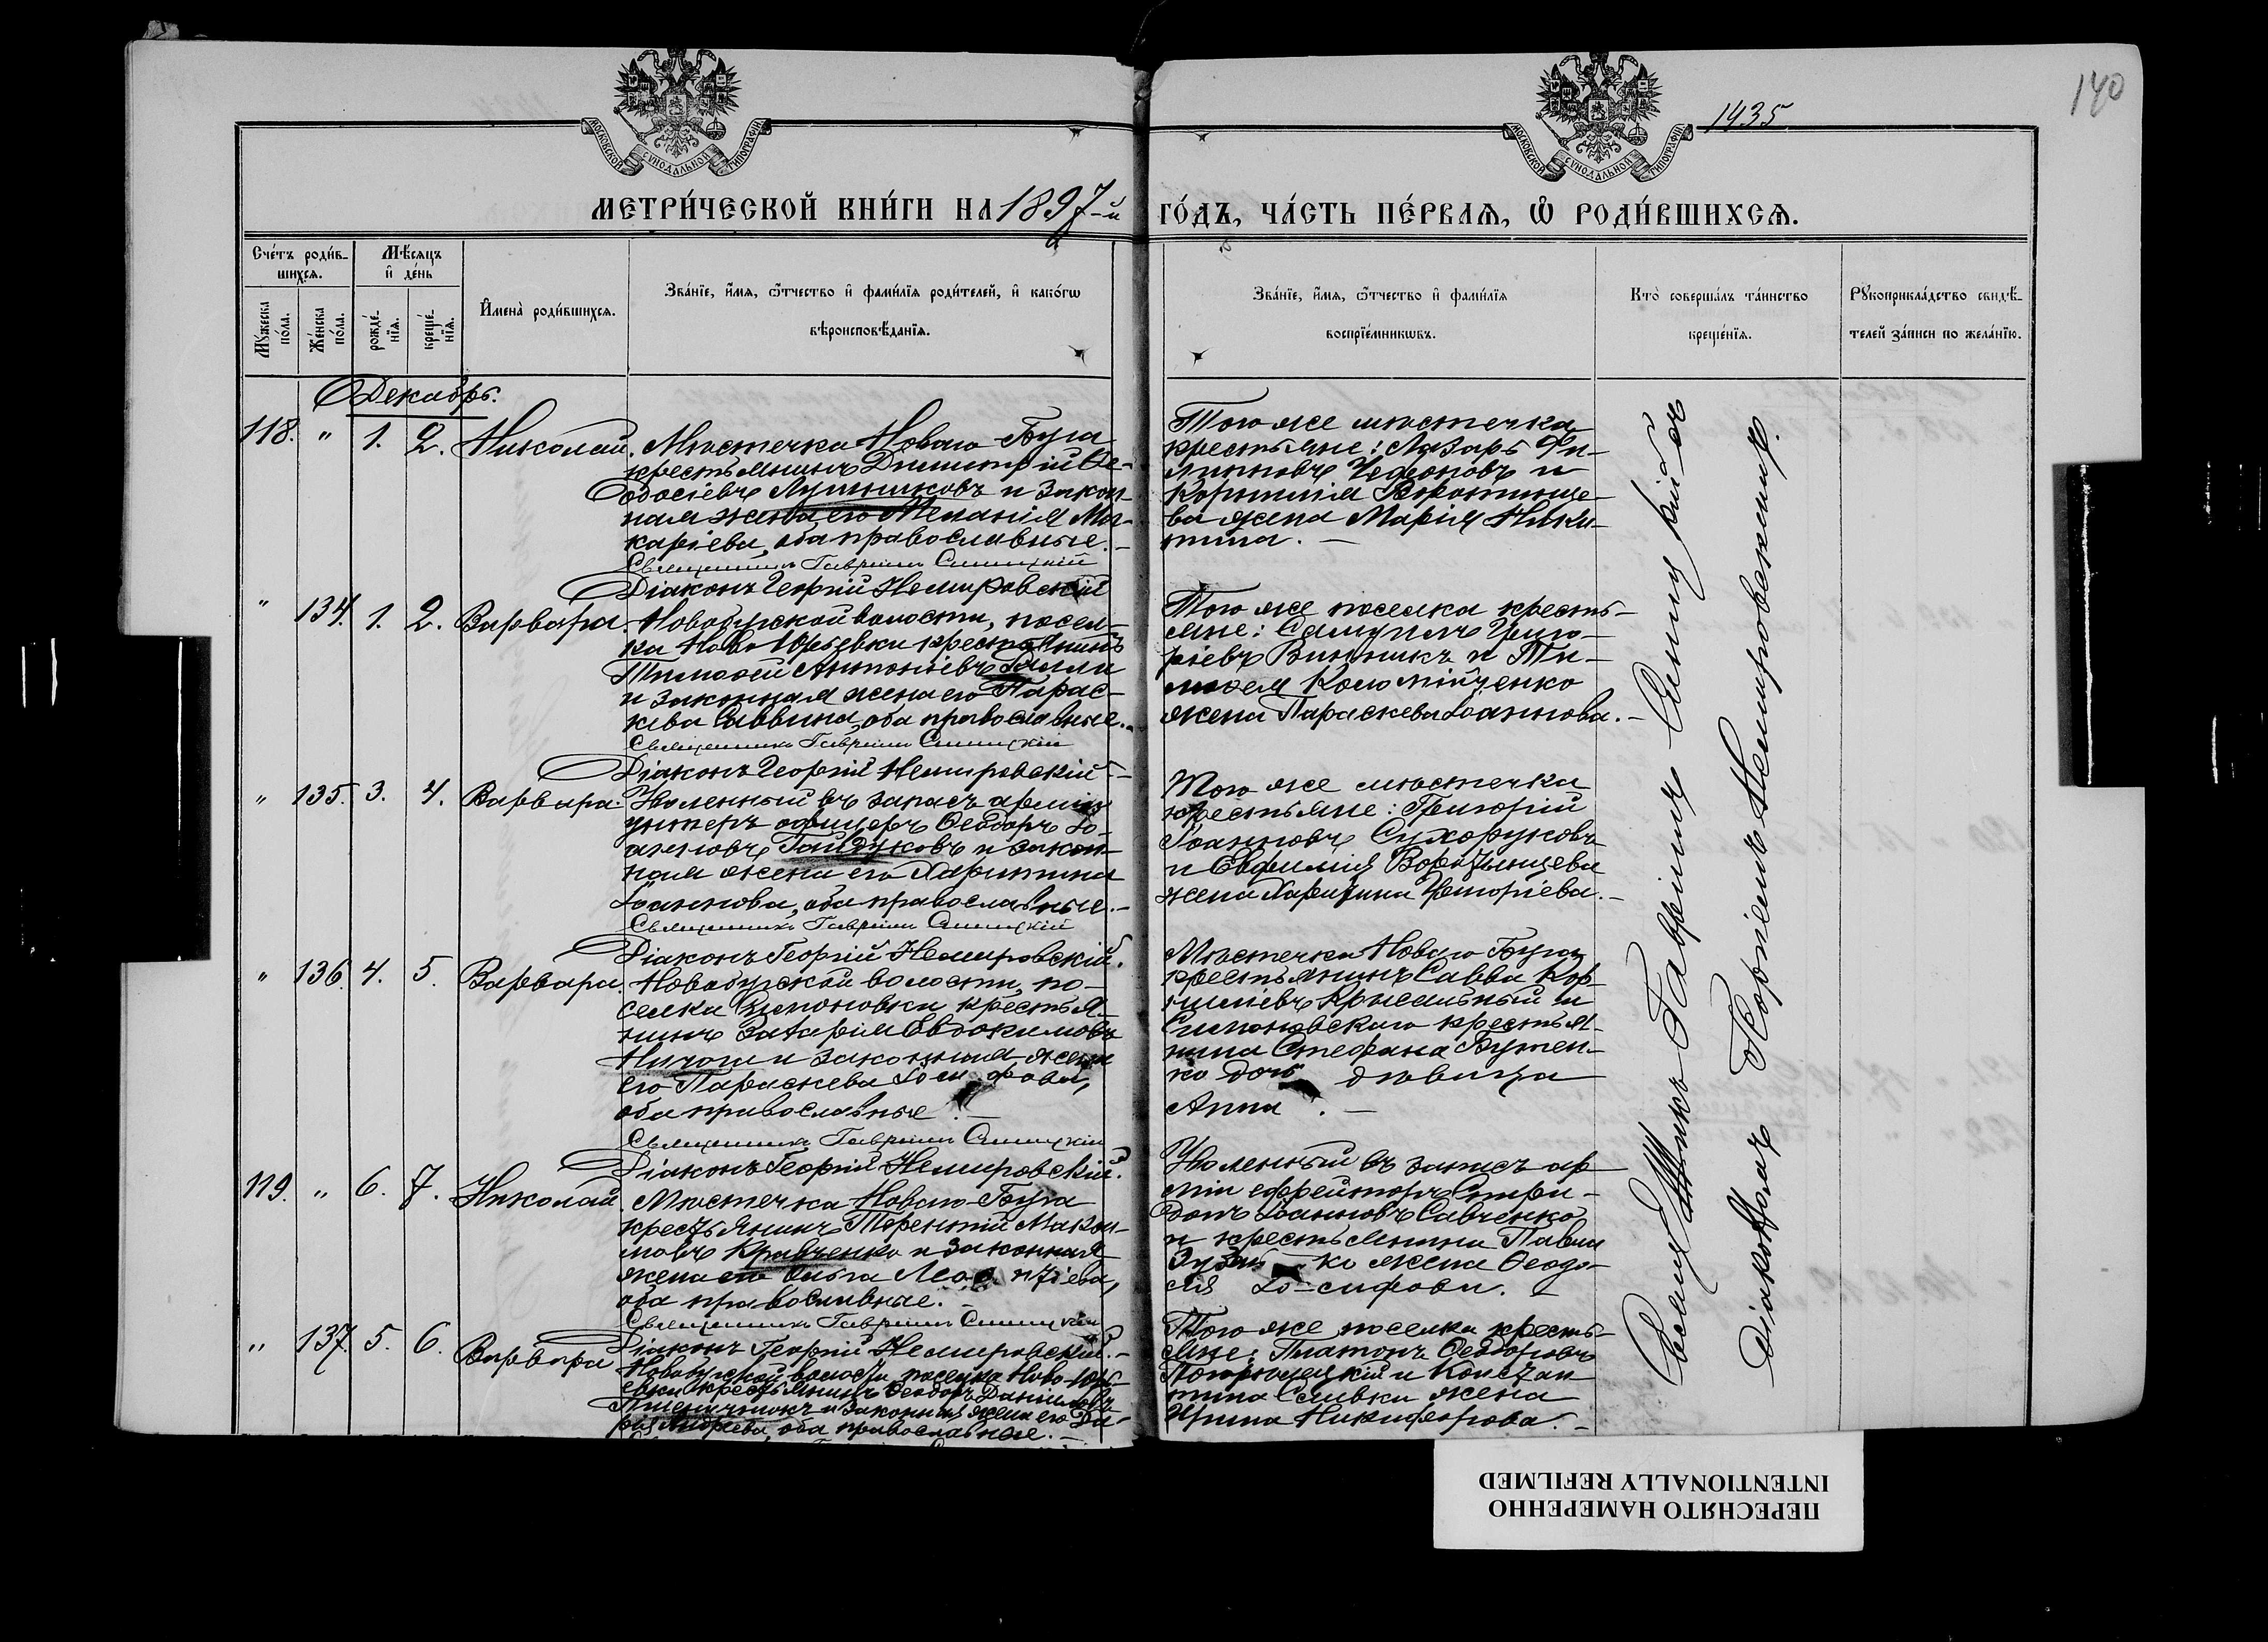 140
1435
МОСКОВСКОЙ СѴНОДАЛЬНОЙ ТИПОГРАФІИ
МОСКОВСКОЙ СѴНОДАЛЬНОЙ ТИПОГРАФІИ
МЕТРИ́ЧЕСКОЙ КНИ́ГИ НА 1897-й ГО́ДЪ, ЧА́СТЬ ПЕ́РВАѦ, Ѽ РОДИ́ВШИХСѦ.
Сче́тъ роди́в-
шихсѧ.
Мѣ́сѧцъ
и҆ де́нь
Мꙋ́жеска
по́ла.
Же́нска
по́ла.
рожде́-
нїѧ.
креще́-
нїѧ.
И҆мена̀ роди́вшихсѧ.
Зва́нїе, и҆́мѧ, ѻ҆́тчество и҆ фами́лїѧ роди́телей, и҆ како́гѡ
вѣроисповѣ́данїѧ.
Зва́нїе, и҆́мѧ, ѻ҆́тчество и҆ фами́лїѧ
воспрїе́мникѡвъ.
Кто̀ соверша́лъ та́инство
креще́нїѧ.
Рꙋкоприкла́дство свидѣ́-
телей за́писи по жела́нїю.
Декабрь.
118. " 1. 2. Николай.
Мѣстечка Новаго Буга
крестьянинъ Димитрій Ѳе-
одосіевъ Лутчиковъ и закон-
ная жена его Меланія Ма-
каріева, оба православные.-
Священникъ Гавріилъ Синицкій
Діаконъ Георгій Немировскій
Того же мѣстечка
крестьяне: Лазарь Фи-
липповъ и
Корнилія
ва жена Марія Ники-
тина.-
" 134. 1. 2. Варвара.
Новобугской волости, посел-
ка Ново Юрьевки крестьянинъ
Тимоѳей Антоніевъ
и законная жена его Парас-
кева Саввина, оба православные.-
Священникъ Гавріилъ Синицкій
Діаконъ Георгій Немировскій-
Того же поселка кресть-
яне: Самуилъ Григо-
ріевъ Винникъ и Ти-
моѳея Коломійченко
жена Параскева Іоаннова.-
" 135. 3. 4. Варвара.
Уволенный въ запасъ арміи
унтеръ офицеръ Ѳеодоръ Іо-
анновъ Гайдуковъ и закон-
ная жена его Харитина
Іоаннова, оба православные.-
Священникъ Гавріилъ Синицкій
Діаконъ Георгій Немировскій.
Того же мѣстечка
крестьяне: Григорій
Іоанновъ Сухоруковъ
и Евфимія Воротынцева
жена Харитина Григоріева.-
" 136. 4. 5. Варвара.
Новобугской волости, по-
селка Симоновки крестья-
нинъ Захарія Евдокимовъ
Ничога и законная жена
его Параскева Іосифова,
оба православные.-
Священникъ Гавріилъ Синицкій
Діаконъ Георгій Немировскій.
Мѣстечка Новаго Буга
крестьянинъ Савва Кор-
ниліевъ и
Симоновскаго крестья-
нина Стефана Бутен-
ко дочь дѣвица
Анна.-
119. " 6. 7. Николай.
Мѣстечка Новаго Буга
крестьянинъ Терентій
Кравченко и законная
жена его Ольга
оба православные.-
Священникъ Гавріилъ Синицкій
Діаконъ Георгій Немировскій.-
Уволенный въ запасъ ар-
міи ефрейторъ Спири-
донъ Іоанновъ Савченко
и крестьянина Павла
жена Ѳеодо-
сія Іо-сифова.-
" 137. 5. 6. Варвара
Новобугской волости, поселка Ново-Юрь-
евки крестьянинъ Ѳеодоръ Даніиловъ
Пшеничникъ и законная жена его Да-
рія Андреева, оба православные.-
Того же поселка кресть-
яне: Платонъ Ѳеодоровъ
и Констан-
тина Сливки жена
Ирина Никифорова.-
Священникъ Гавріилъ Синицкій съ
діакономъ Георгіемъ Немировскимъ.
ПЕРЕСНЯТО НАМЕРЕННО
INTENTIONALLY REFILMED